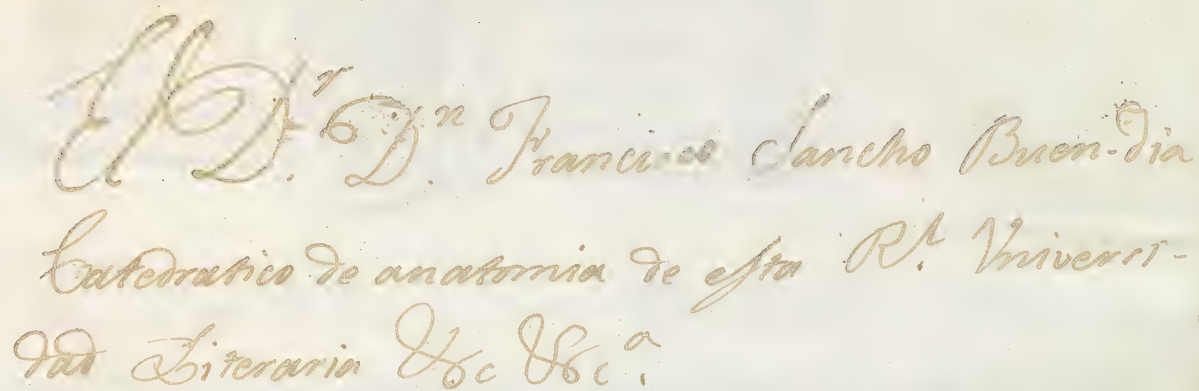 El D.r D.n Francisco Sancho Buen-dia
Catedratico de anatomia de esta R.l Universi-
dad Literaria &c &c.a